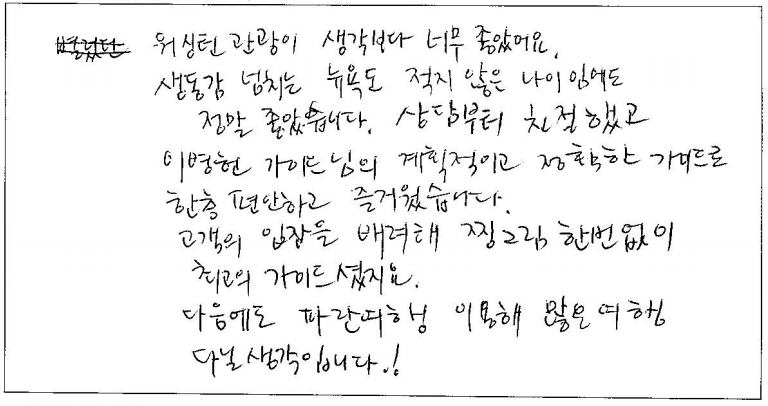 워싱턴 관광이 생각보다 너무 좋았어요.
생동감 넘치는 뉴욕도 적지 않은 나이임에도
정말 좋았습니다. 상담부터 친절했고
이병현 가이드님의 계획적이고 정확한 가이드로
한층 편안하고 즐거웠습니다.
고객의 입장을 배려해 찡그림 한번 없이
최고의 가이드셨지요.
다음에도 파란여행 이용해 많은 여행
다닐 생각입니다.!